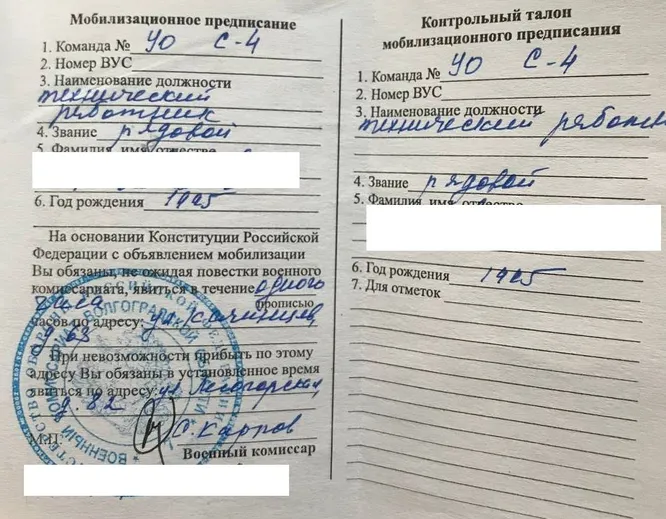 Мобилизационное предписание
1. Команда № УО С-4
2. Номер ВУС
3. Наименование должности
технический
работник
4. Звание рядовой
5. Фамилия, имя, отчество
6. Год рождения 1985
На основании Конституции Российской
Федерации с объявлением мобилизации
Вы обязаны, не ожидая повестки военного
комиссариата, явиться в течение одного
часа прописью
часов по адресу: ул.
д. 63
При невозможности прибыть по этому
адресу Вы обязаны в установленное время
явиться по адресу: ул
д. 82
М.П. С. Карпов
Военный комиссар
ВОЕННЫЙ КОМИССАРИАТ ВОЛГОГРАДСКОЙ ОБЛАСТИ
Контрольный талон
мобилизационного предписания
1. Команда № УО С-4
2. Номер ВУС
3. Наименование должности
технический работн
4. Звание рядовой
5. Фамилия, имя, отчество
6. Год рождения 1985
7. Для отметок